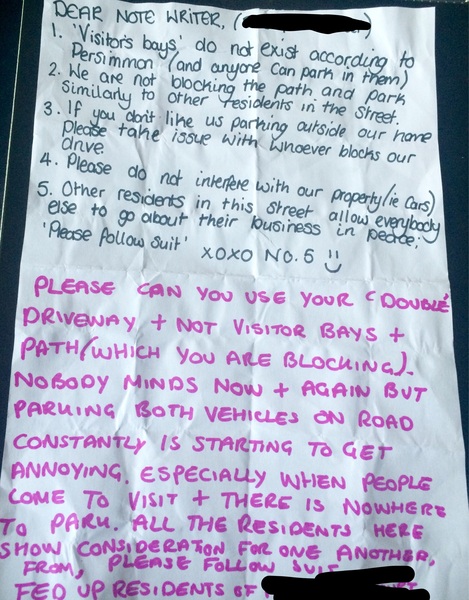 DEAR NOTE WRITER, (
1. 'Visitors bays' do not exist according to
Persimmon (and anyone can park in them)
2. We are not blocking the path and park
similarly to other residents in the street.
3. If you don't like us parking outside our home
Please take issue with whoever blocks our
drive.
4. Please do not interfere with our property (ie Cars)
5. Other residents in this street allow everybody
else to go about their business in peace;
'Please follow suit' XOXO No. 5
PLEASE CAN YOU USE YOUR 'DOUBLE'
DRIVEWAY + NOT VISITOR BAYS +
PATH (WHICH YOU ARE BLOCKING).
NOBODY MINDS NOW + AGAIN BUT
PARKING BOTH VEHICLES ON ROAD
CONSTANTLY IS STARTING TO GET
ANNOYING. ESPECIALLY WHEN PEOPLE
COME TO VISIT + THERE IS NOWHERE
TO PARK. ALL THE RESIDENTS HERE
SHOW CONSIDERATION FOR ONE ANOTHER,
FROM, PLEASE FOLLOW SUIT
FED UP RESIDENTS OF